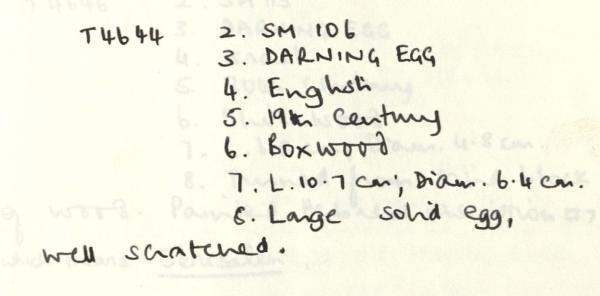 T4644 2. SM 106
3. DARNING EGG
4. English
5. 19th Century
6. Boxwood
7. L. 10.7 cm; Diam. 6.4 cm.
8. Large solid egg,
well scratched.